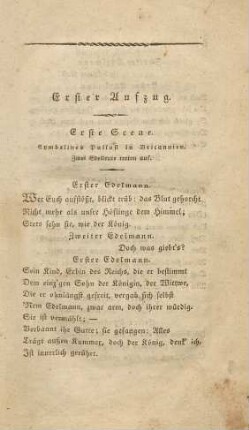 Erster Aufzug.
Erste Scene.
Cymbelines Pallast in Britannien.
Zwei Edelleute treten auf.
Erster Edelmann.
Wer Euch aufstößt, blickt trüb: das Blut gehorcht
Nicht mehr als unsre Höflinge dem Himmel;
Stets sehn sie, wie der König.
Zweiter Edelmann.
Doch was giebt's?
Erster Edelmann.
Sein Kind, Erbin des Reichs, die er bestimmt
Dem einz'gen Sohn der Königin, der Wittwe,
Die er ohnlängst gefreit, vergab sich selbst
'Nem Edelmann, zwar arm, doch ihrer würdig.
Sie ist vermählt; —
Verbannt ihr Gatte; sie gefangen: Alles
Trägt außen Kummer, doch der König, denk' ich,
Ist innerlich gerührt.